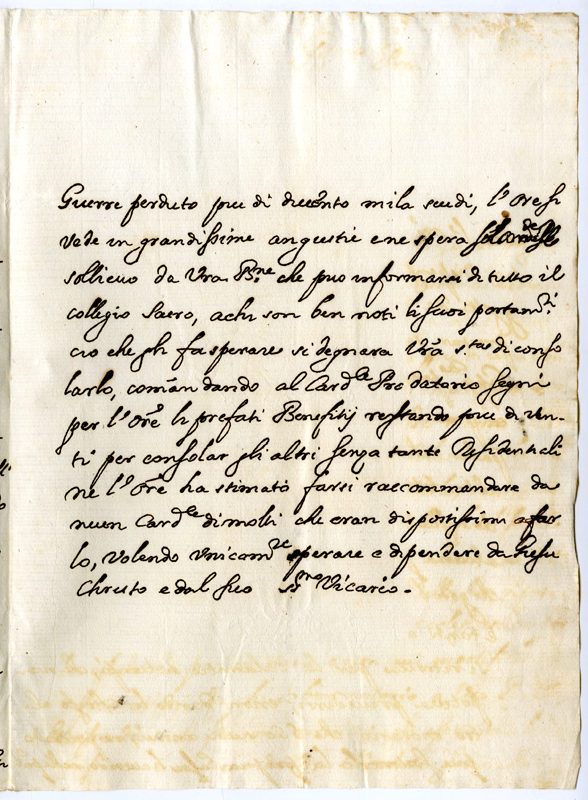 Guerre perduto piu di ducento mila scudi, l'Ore si
vede in grandissime angustie e ne spera
sollievo da Vra B.ne che puo informarsi di tutto il
collegio Sacro, a chi son ben noti li suoi portam.ti
cio che gli fa sperare si degnara Vra S.tas di conso
larlo, comandando al Card.le Pro datario segni
per l'Ore li prefati Benefitij restando piu di ven-
ti per consolar gli altri senza tante Residentiali
ne l'Ore ha stimato farsi raccommandare da
niun Card.le di molti che eran dispostissimi a far
lo, volendo unicam.te sperare e dipendere da Giesu
Christo e dal suo S.mo Vicario.